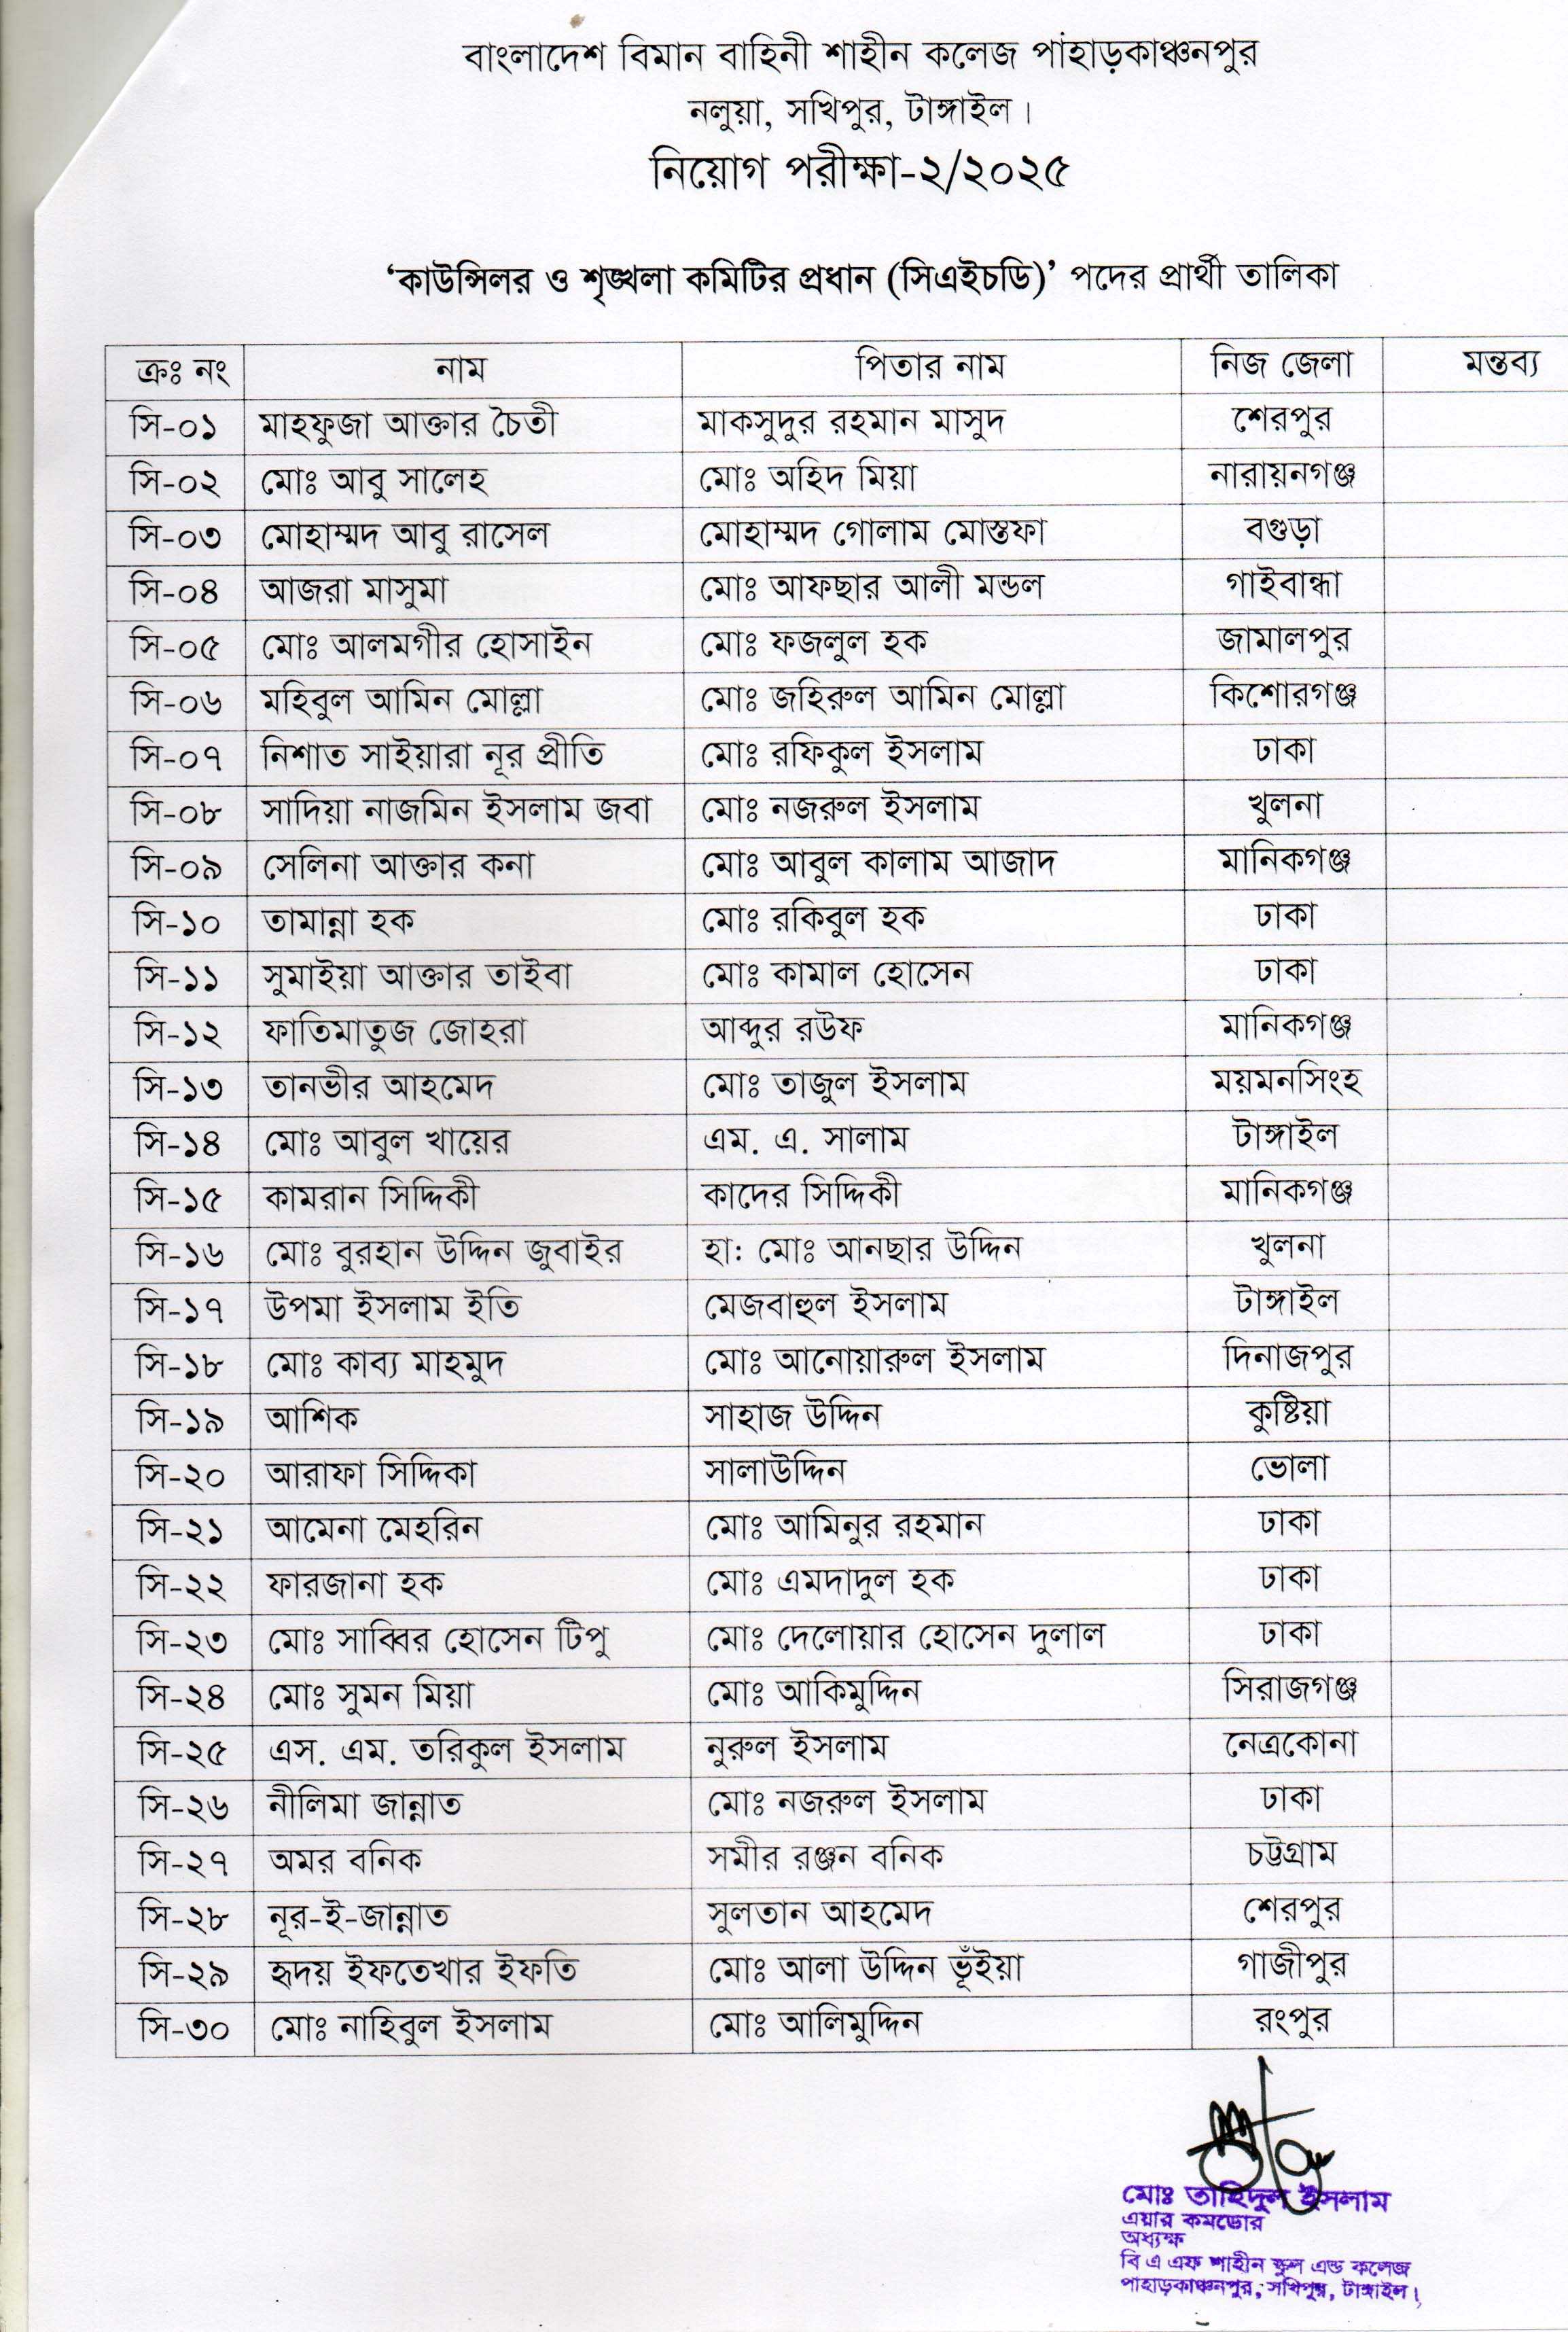 বাংলাদেশ বিমান বাহিনী শাহীন কলেজ পাহাড়কাঞ্চনপুর
নলুয়া, সখিপুর, টাঙ্গাইল।
নিয়োগ পরীক্ষা-২/২০২৫
‘কাউন্সিলর ও শৃঙ্খলা কমিটির প্রধান (সিএইচডি)’ পদের প্রার্থী তালিকা
ক্রঃ নং নাম পিতার নাম নিজ জেলা মন্তব্য
সি-০১ মাহফুজা আক্তার চৈতী মাকসুদুর রহমান মাসুদ শেরপুর
সি-০২ মোঃ আবু সালেহ মোঃ অহিদ মিয়া নারায়নগঞ্জ
সি-০৩ মোহাম্মদ আবু রাসেল মোহাম্মদ গোলাম মোস্তফা বগুড়া
সি-০৪ আজরা মাসুমা মোঃ আফছার আলী মন্ডল গাইবান্ধা
সি-০৫ মোঃ আলমগীর হোসাইন মোঃ ফজলুল হক জামালপুর
সি-০৬ মহিবুল আমিন মোল্লা মোঃ জহিরুল আমিন মোল্লা কিশোরগঞ্জ
সি-০৭ নিশাত সাইয়ারা নূর প্রীতি মোঃ রফিকুল ইসলাম ঢাকা
সি-০৮ সাদিয়া নাজমিন ইসলাম জবা মোঃ নজরুল ইসলাম খুলনা
সি-০৯ সেলিনা আক্তার কনা মোঃ আবুল কালাম আজাদ মানিকগঞ্জ
সি-১০ তামান্না হক মোঃ রকিবুল হক ঢাকা
সি-১১ সুমাইয়া আক্তার তাইবা মোঃ কামাল হোসেন ঢাকা
সি-১২ ফাতিমাতুজ জোহরা আব্দুর রউফ মানিকগঞ্জ
সি-১৩ তানভীর আহমেদ মোঃ তাজুল ইসলাম ময়মনসিংহ
সি-১৪ মোঃ আবুল খায়ের এম. এ. সালাম টাঙ্গাইল
সি-১৫ কামরান সিদ্দিকী কাদের সিদ্দিকী মানিকগঞ্জ
সি-১৬ মোঃ বুরহান উদ্দিন জুবাইর হা: মোঃ আনছার উদ্দিন খুলনা
সি-১৭ উপমা ইসলাম ইতি মেজবাহুল ইসলাম টাঙ্গাইল
সি-১৮ মোঃ কাব্য মাহমুদ মোঃ আনোয়ারুল ইসলাম দিনাজপুর
সি-১৯ আশিক সাহাজ উদ্দিন কুষ্টিয়া
সি-২০ আরাফা সিদ্দিকা সালাউদ্দিন ভোলা
সি-২১ আমেনা মেহরিন মোঃ আমিনুর রহমান ঢাকা
সি-২২ ফারজানা হক মোঃ এমদাদুল হক ঢাকা
সি-২৩ মোঃ সাব্বির হোসেন টিপু মোঃ দেলোয়ার হোসেন দুলাল ঢাকা
সি-২৪ মোঃ সুমন মিয়া মোঃ আকিমুদ্দিন সিরাজগঞ্জ
সি-২৫ এস. এম. তরিকুল ইসলাম নুরুল ইসলাম নেত্রকোনা
সি-২৬ নীলিমা জান্নাত মোঃ নজরুল ইসলাম ঢাকা
সি-২৭ অমর বনিক সমীর রঞ্জন বনিক চট্টগ্রাম
সি-২৮ নূর-ই-জান্নাত সুলতান আহমেদ শেরপুর
সি-২৯ হৃদয় ইফতেখার ইফতি মোঃ আলা উদ্দিন ভূঁইয়া গাজীপুর
সি-৩০ মোঃ নাহিবুল ইসলাম মোঃ আলিমুদ্দিন রংপুর
মোঃ তাহিদুল ইসলাম
এয়ার কমডোর
অধ্যক্ষ
বি এ এফ শাহীন স্কুল এন্ড কলেজ
পাহাড়কাঞ্চনপুর, সখিপুর, টাঙ্গাইল।